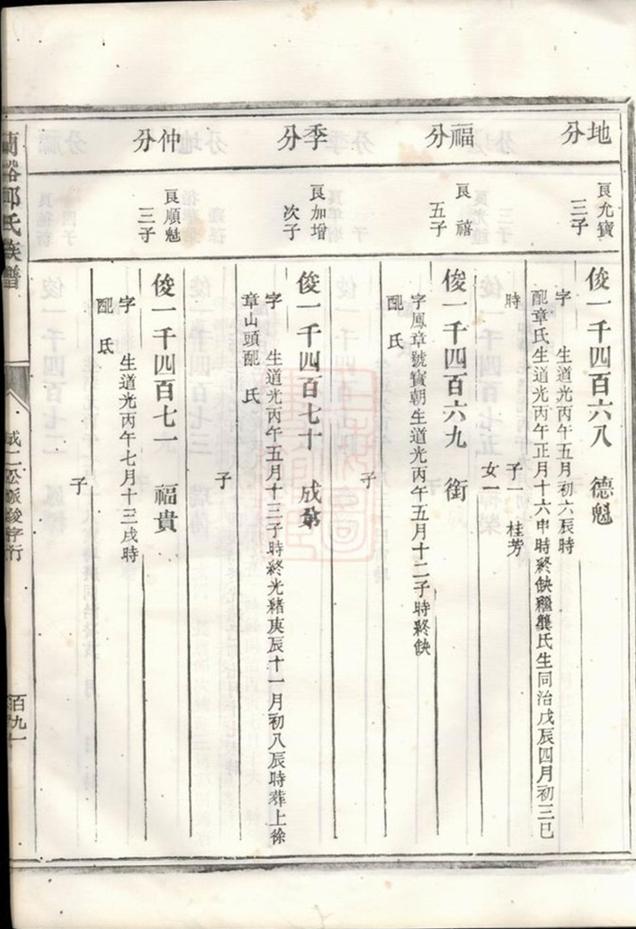 地分
良允寶
三子
俊一千四百六八 德魁
字 生道光丙午五月初六辰時
配章氏生道光丙午正月十六申時終缺繼龔氏生同治戊辰四月初三巳
時 子一 桂芳
女一
福分
良禧
五子
俊一千四百六九 銜
字鳳章號寶朝生道光丙午五月十二子時終缺
配 氏
子
季分
良加增
次子
俊一千四百七十 成弟
字 生道光丙午五月十三子時終光緒庚辰十一月初八辰時葬上徐
章山頭配 氏
子
仲分
良順魁
三子
俊一千四百七一 福貴
字 生道光丙午七月十三戌時
配 氏
子
蘭谿 氏族譜
成二公派俊字行
百九一